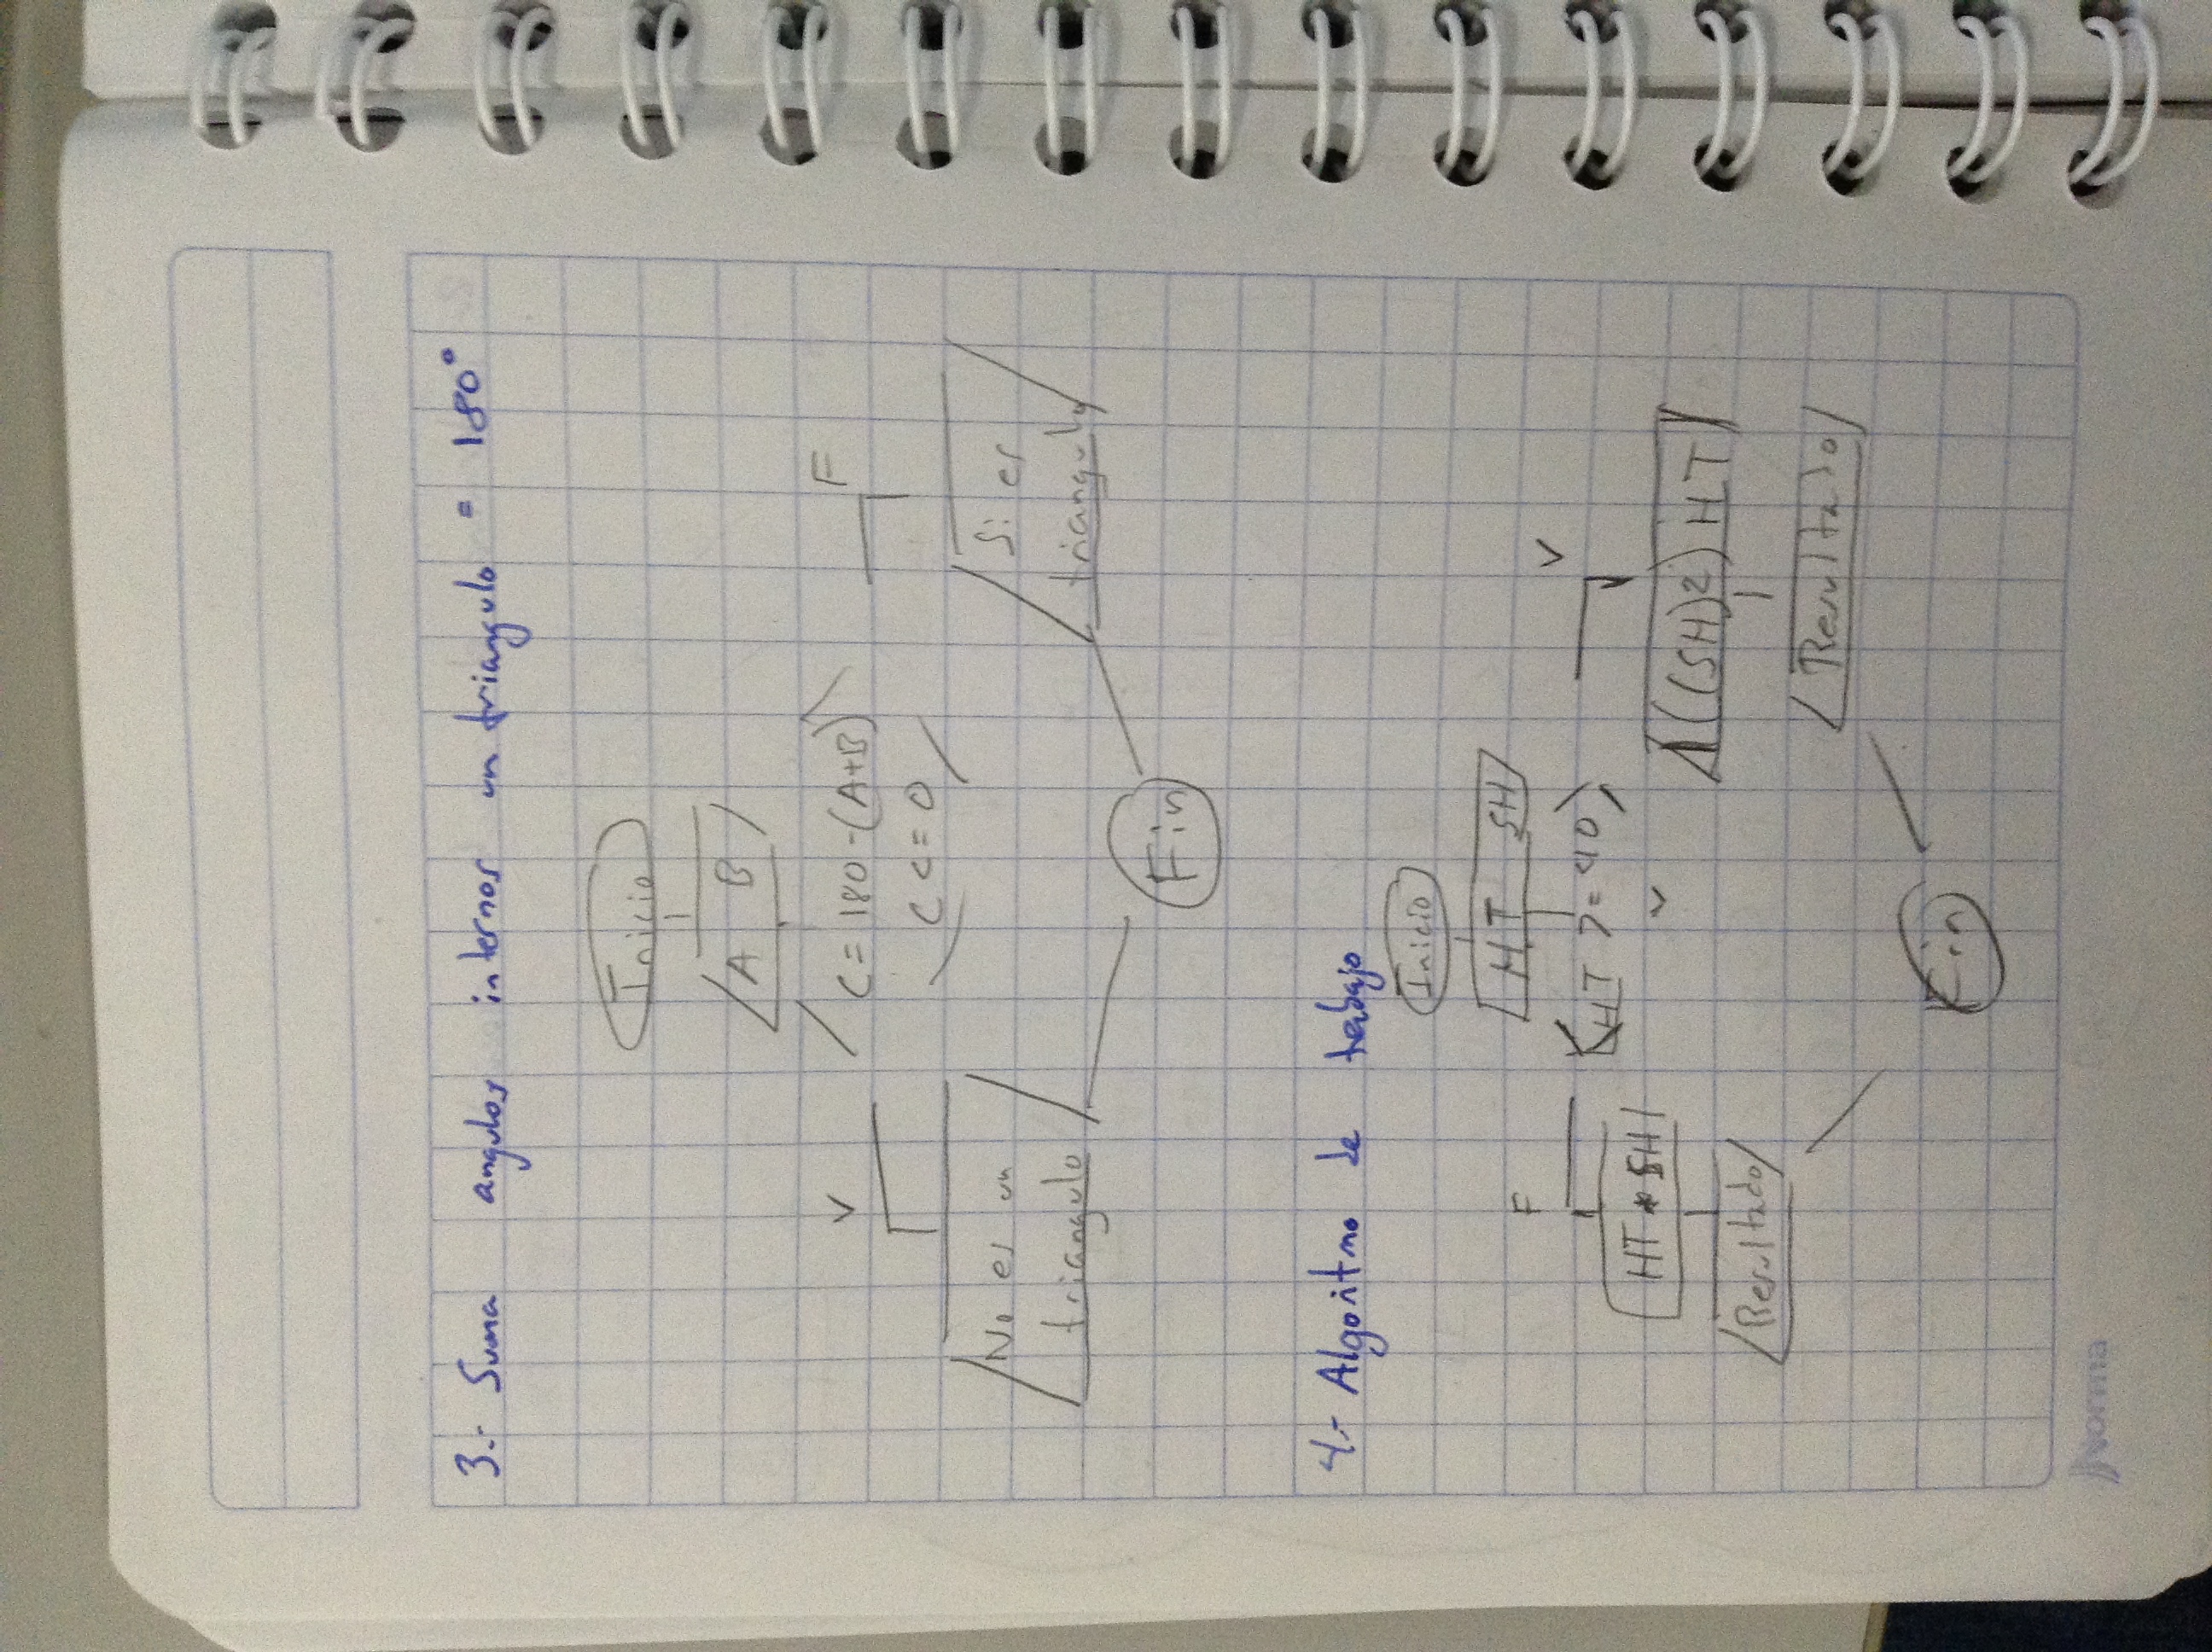 3.- Suma angulos internos un triangulo = 180°
Inicio
A B
V
C = 180 - (A+B)
F
C <= 0
No es un
triangulo
Si es
triangulo
Fin
4.- Algoritmo de trabajo
Inicio
HT SH
F
HT >= 40
V
HT * SH
V
((SH)2) HT
Resultado
Resultado
Fin
Norma